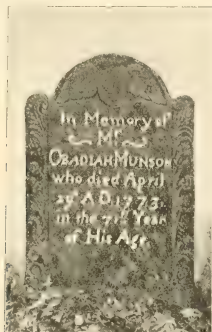 In Memory of
Mr.
OBADIAH MUNSON
who died April
A.D. 1773.
in the Year
of His Age